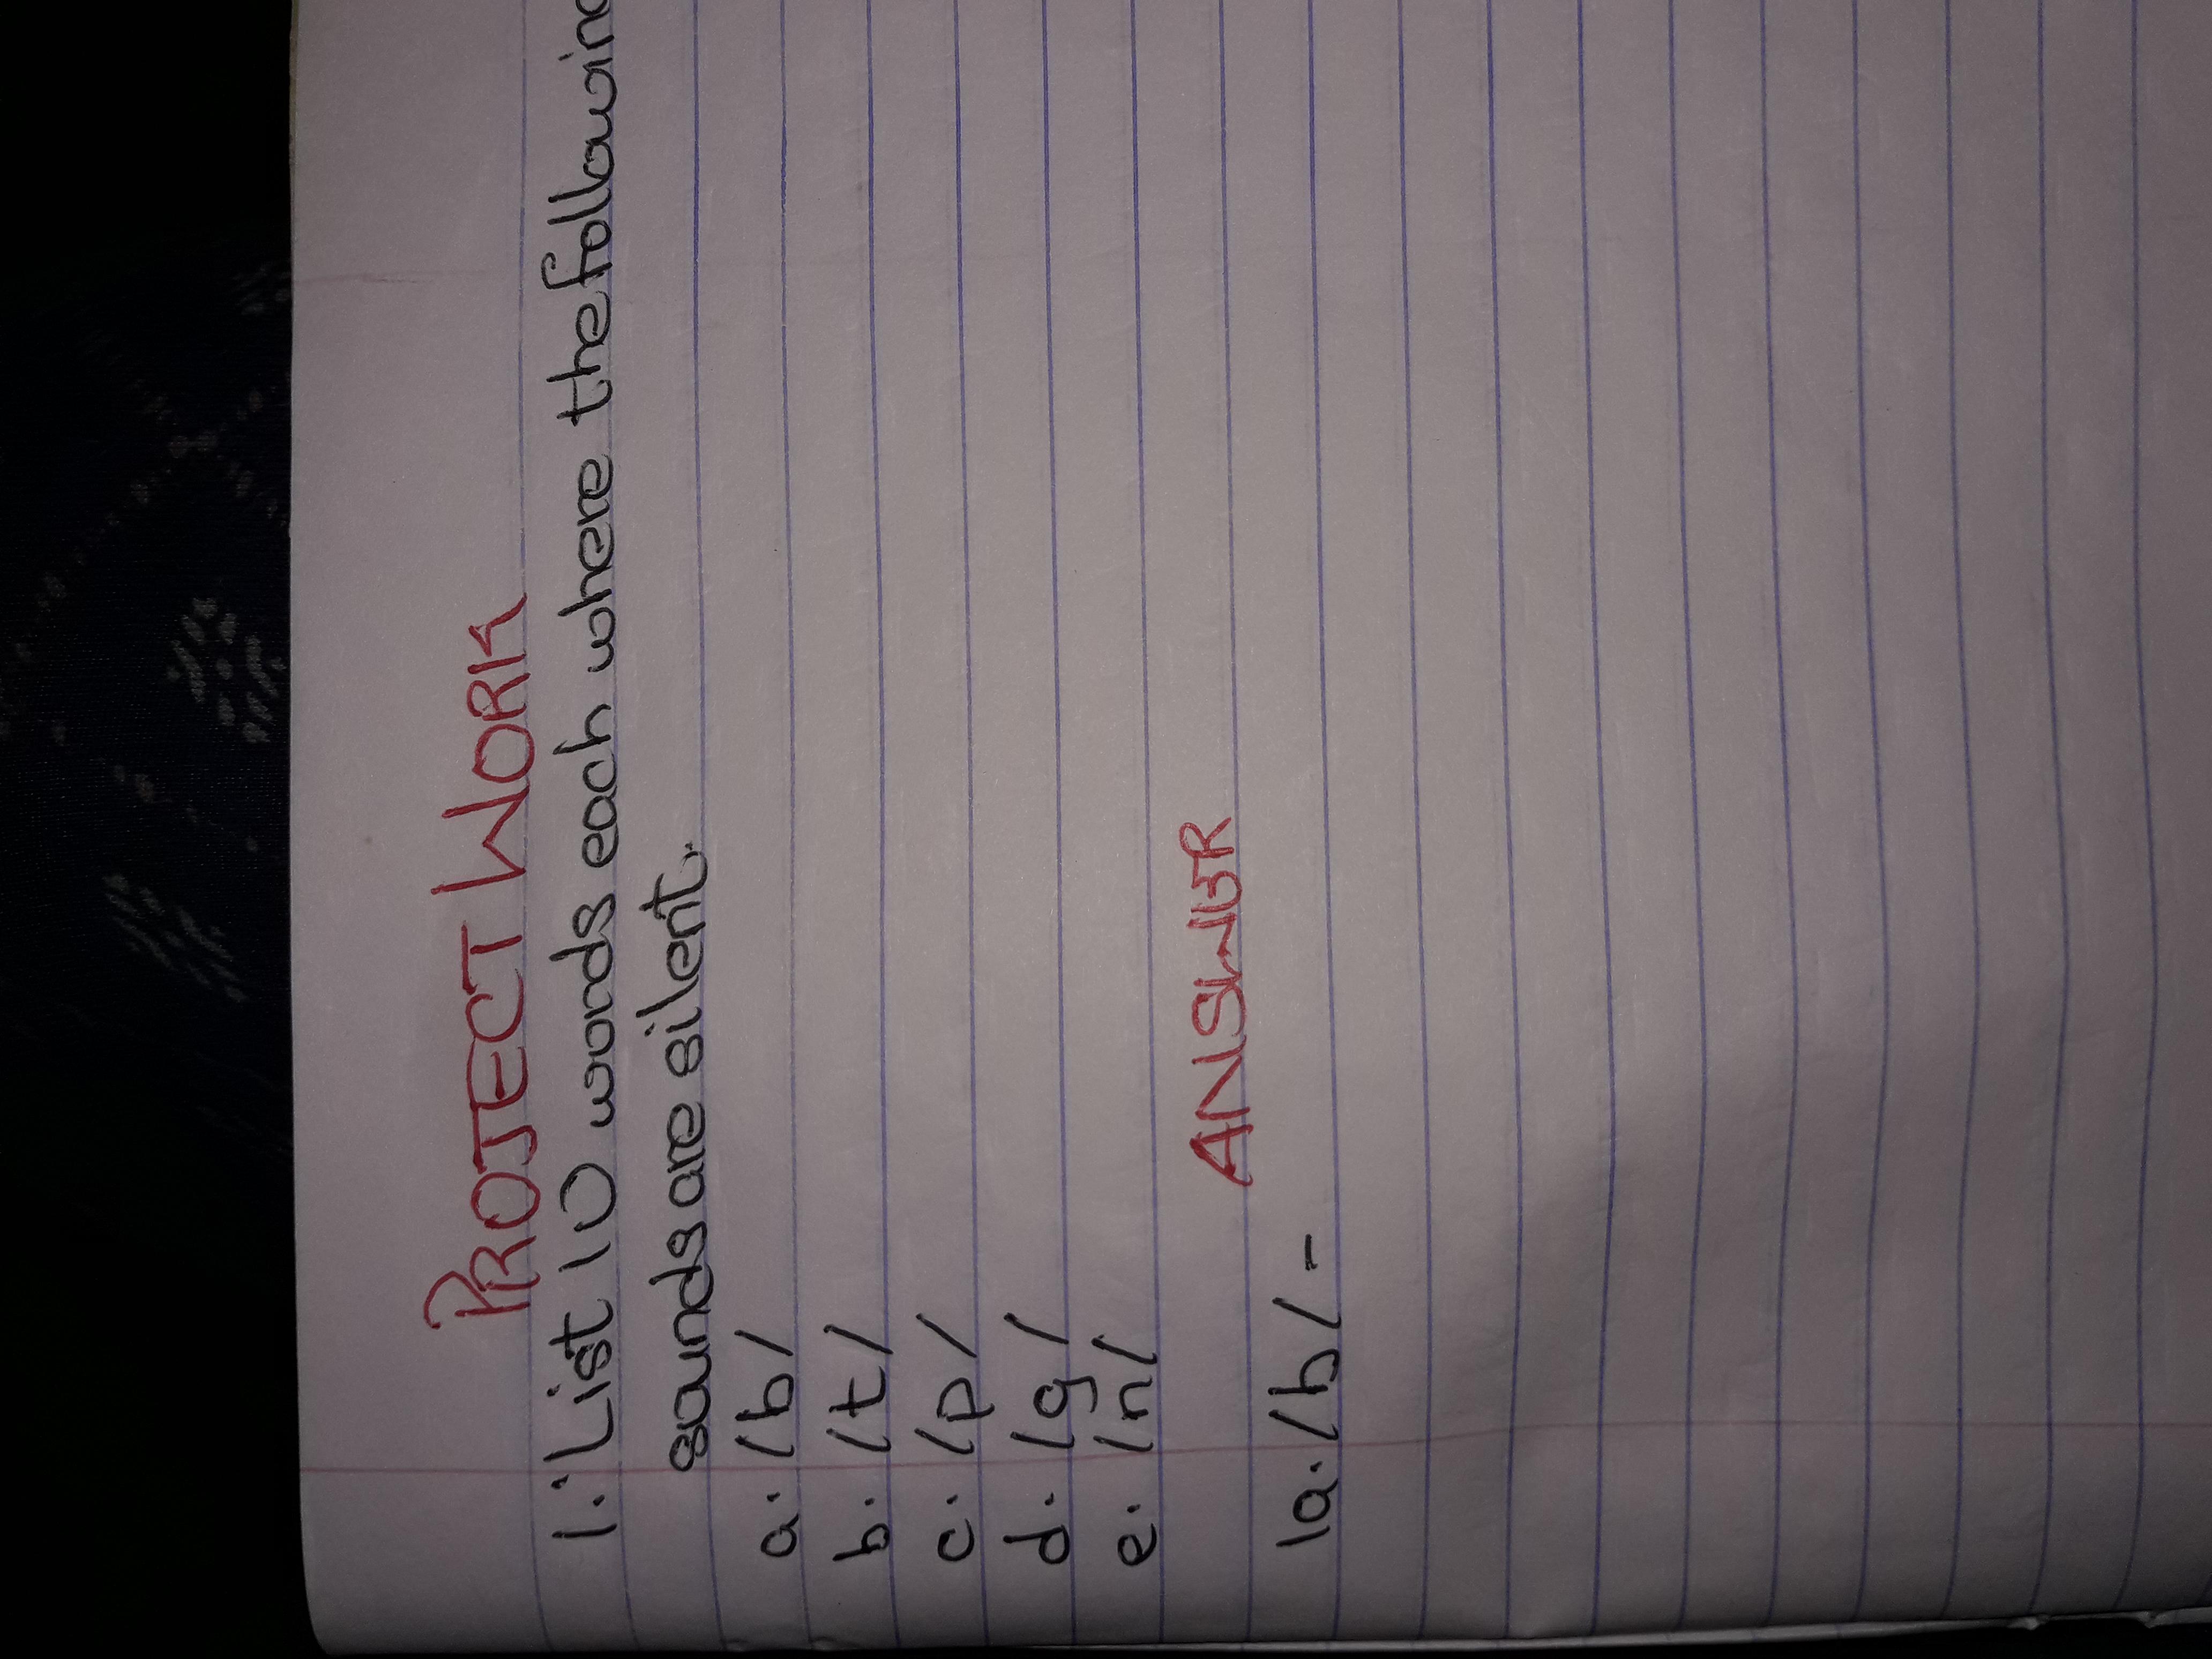 PROJECT WORK
1. List 10 words each where the following
sounds are silent.
a. /b/
b. /t/
c. /p/
d. /g/
e. /n/
ANSWER
1a. /b/ -